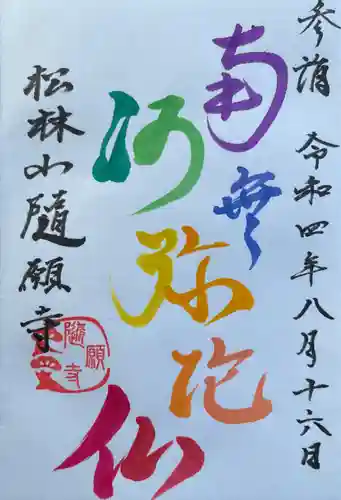 参詣 令和四年八月十六日
南無
阿弥陀
仏
松林山隨願寺
隨願寺